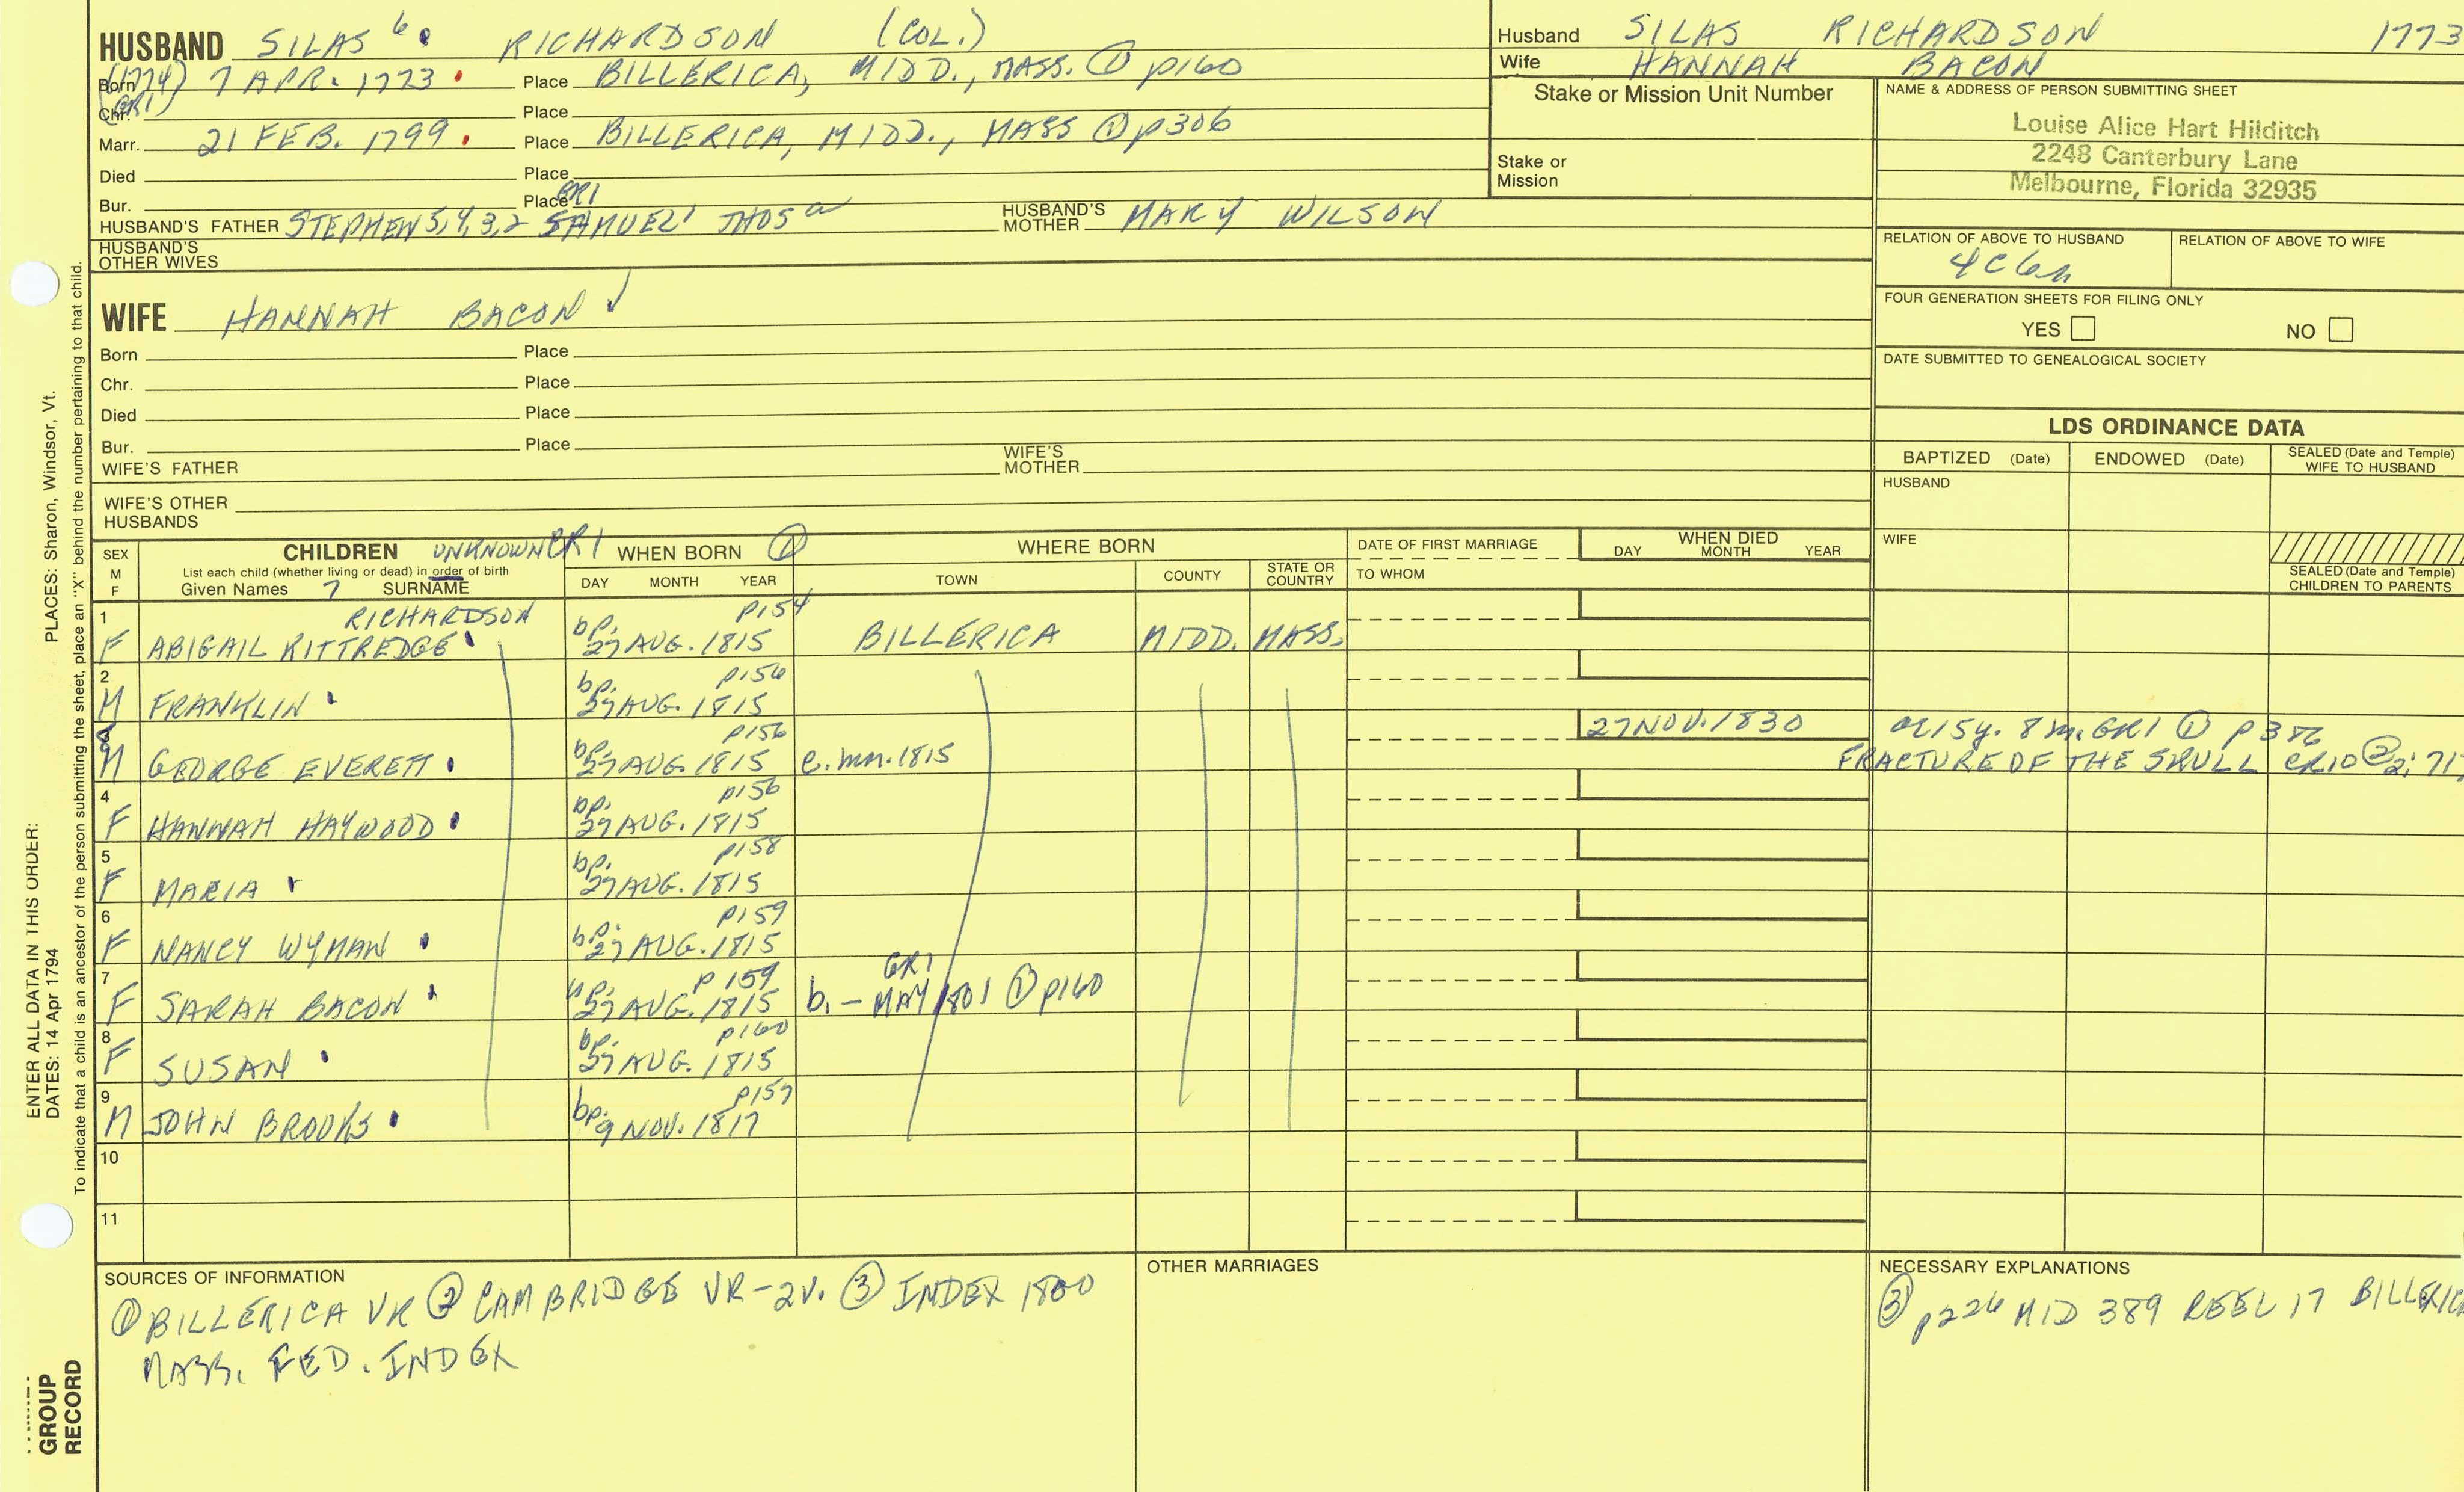 HUSBAND SILAS 6. RICHARDSON (COL.)
(1774) Born 7 APR. 1773. Place BILLERICA, MIDD., MASS. ① p160
(GR1) Chr. Place
Marr. 21 FEB. 1799. Place BILLERICA, MIDD., MASS ① p306
Died Place
Bur. Place GR1
HUSBAND'S FATHER STEPHEN 5,4,3,2 SAMUEL1 THOS a HUSBAND'S MOTHER MARY WILSON
HUSBAND'S OTHER WIVES
Husband SILAS RICHARDSON 1773
Wife HANNAH BACON
Stake or Mission Unit Number
Stake or Mission
NAME & ADDRESS OF PERSON SUBMITTING SHEET
Louise Alice Hart Hilditch
2248 Canterbury Lane
Melbourne, Florida 32935
RELATION OF ABOVE TO HUSBAND RELATION OF ABOVE TO WIFE
4C6R
FOUR GENERATION SHEETS FOR FILING ONLY
YES NO
DATE SUBMITTED TO GENEALOGICAL SOCIETY
WIFE HANNAH BACON ✓
Born Place
Chr. Place
Died Place
Bur. Place
WIFE'S FATHER WIFE'S MOTHER
WIFE'S OTHER HUSBANDS
LDS ORDINANCE DATA
BAPTIZED (Date) ENDOWED (Date) SEALED (Date and Temple) WIFE TO HUSBAND
HUSBAND
WIFE
SEALED (Date and Temple) CHILDREN TO PARENTS
SEX M F CHILDREN UNKNOWN GR1 WHEN BORN ① WHERE BORN DATE OF FIRST MARRIAGE WHEN DIED DAY MONTH YEAR
List each child (whether living or dead) in order of birth
Given Names ? SURNAME DAY MONTH YEAR TOWN COUNTY STATE OR COUNTRY TO WHOM
1 RICHARDSON p154
F ABIGAIL KITTREDGE bp. 27 AUG. 1815 BILLERICA MIDD. MASS.
2 p156
M FRANKLIN bp. 27 AUG. 1815
3 p156 27 NOV. 1830 a.15y. 8m. GR1 ① p386
M GEORGE EVERETT bp. 27 AUG. 1815 c. mn. 1815 FRACTURE OF THE SKULL CR10 ② 2; 717
4 p156
F HANNAH HAYWOOD bp. 27 AUG. 1815
5 p158
F MARIA bp. 27 AUG. 1815
6 p159
F NANCY WYMAN bp. 27 AUG. 1815
7 p159 GR1
F SARAH BACON bp. 27 AUG. 1815 b. - MAY 1801 ① p160
8 p160
F SUSAN bp. 27 AUG. 1815
9 p157
M JOHN BROOKS bp. 9 NOV. 1817
10
11
SOURCES OF INFORMATION
① BILLERICA VR ② CAMBRIDGE VR-2V. ③ INDEX 1800
MASS. FED. INDEX
OTHER MARRIAGES
NECESSARY EXPLANATIONS
③ p226 MID 389 REEL 17
PLACES: Sharon, Windsor, Vt.
ENTER ALL DATA IN THIS ORDER:
DATES: 14 Apr 1794
To indicate that a child is an ancestor of the person submitting the sheet, place an "X" behind the number pertaining to that child.
GROUP
RECORD